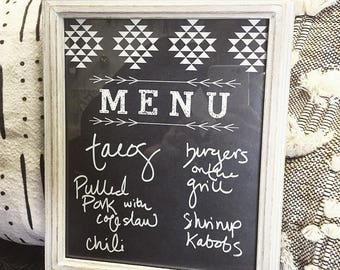 MENU
tacos
Pulled
Pork with
coleslaw
chili
burgers
on the
grill
Shrimp
Kabobs